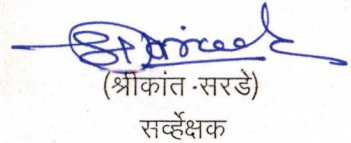 (श्रीकांत.सरडे)
सर्व्हेक्षक